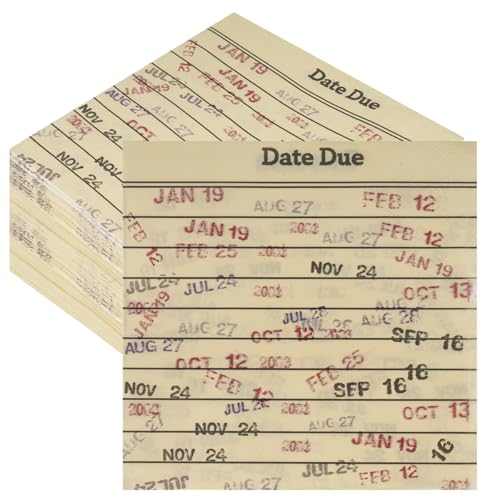 Date Due
JAN 19
FEB 12
JAN 19
JUL 24
FEB 25
JAN 19
AUG 27
NOV 24
2003
OCT 13
NOV 24
NOV 24
Date Due
JAN 19 AUG 27 FEB 12
JAN 19 AUG 27
FEB 12 FEB 25 2003
NOV 24 JAN 19
JUL 24 JUL 24 2003 OCT 13
JAN 19 JUL 28 AUG 28
AUG 27 OCT 12 AUG 28 SEP 16
AUG 27
OCT 12 2003 FEB 25 16
NOV 24 FEB 12 SEP 16
2003 JUL 28 2003 OCT 13
NOV 24 JAN 19 16
JUL 24 FEB 12